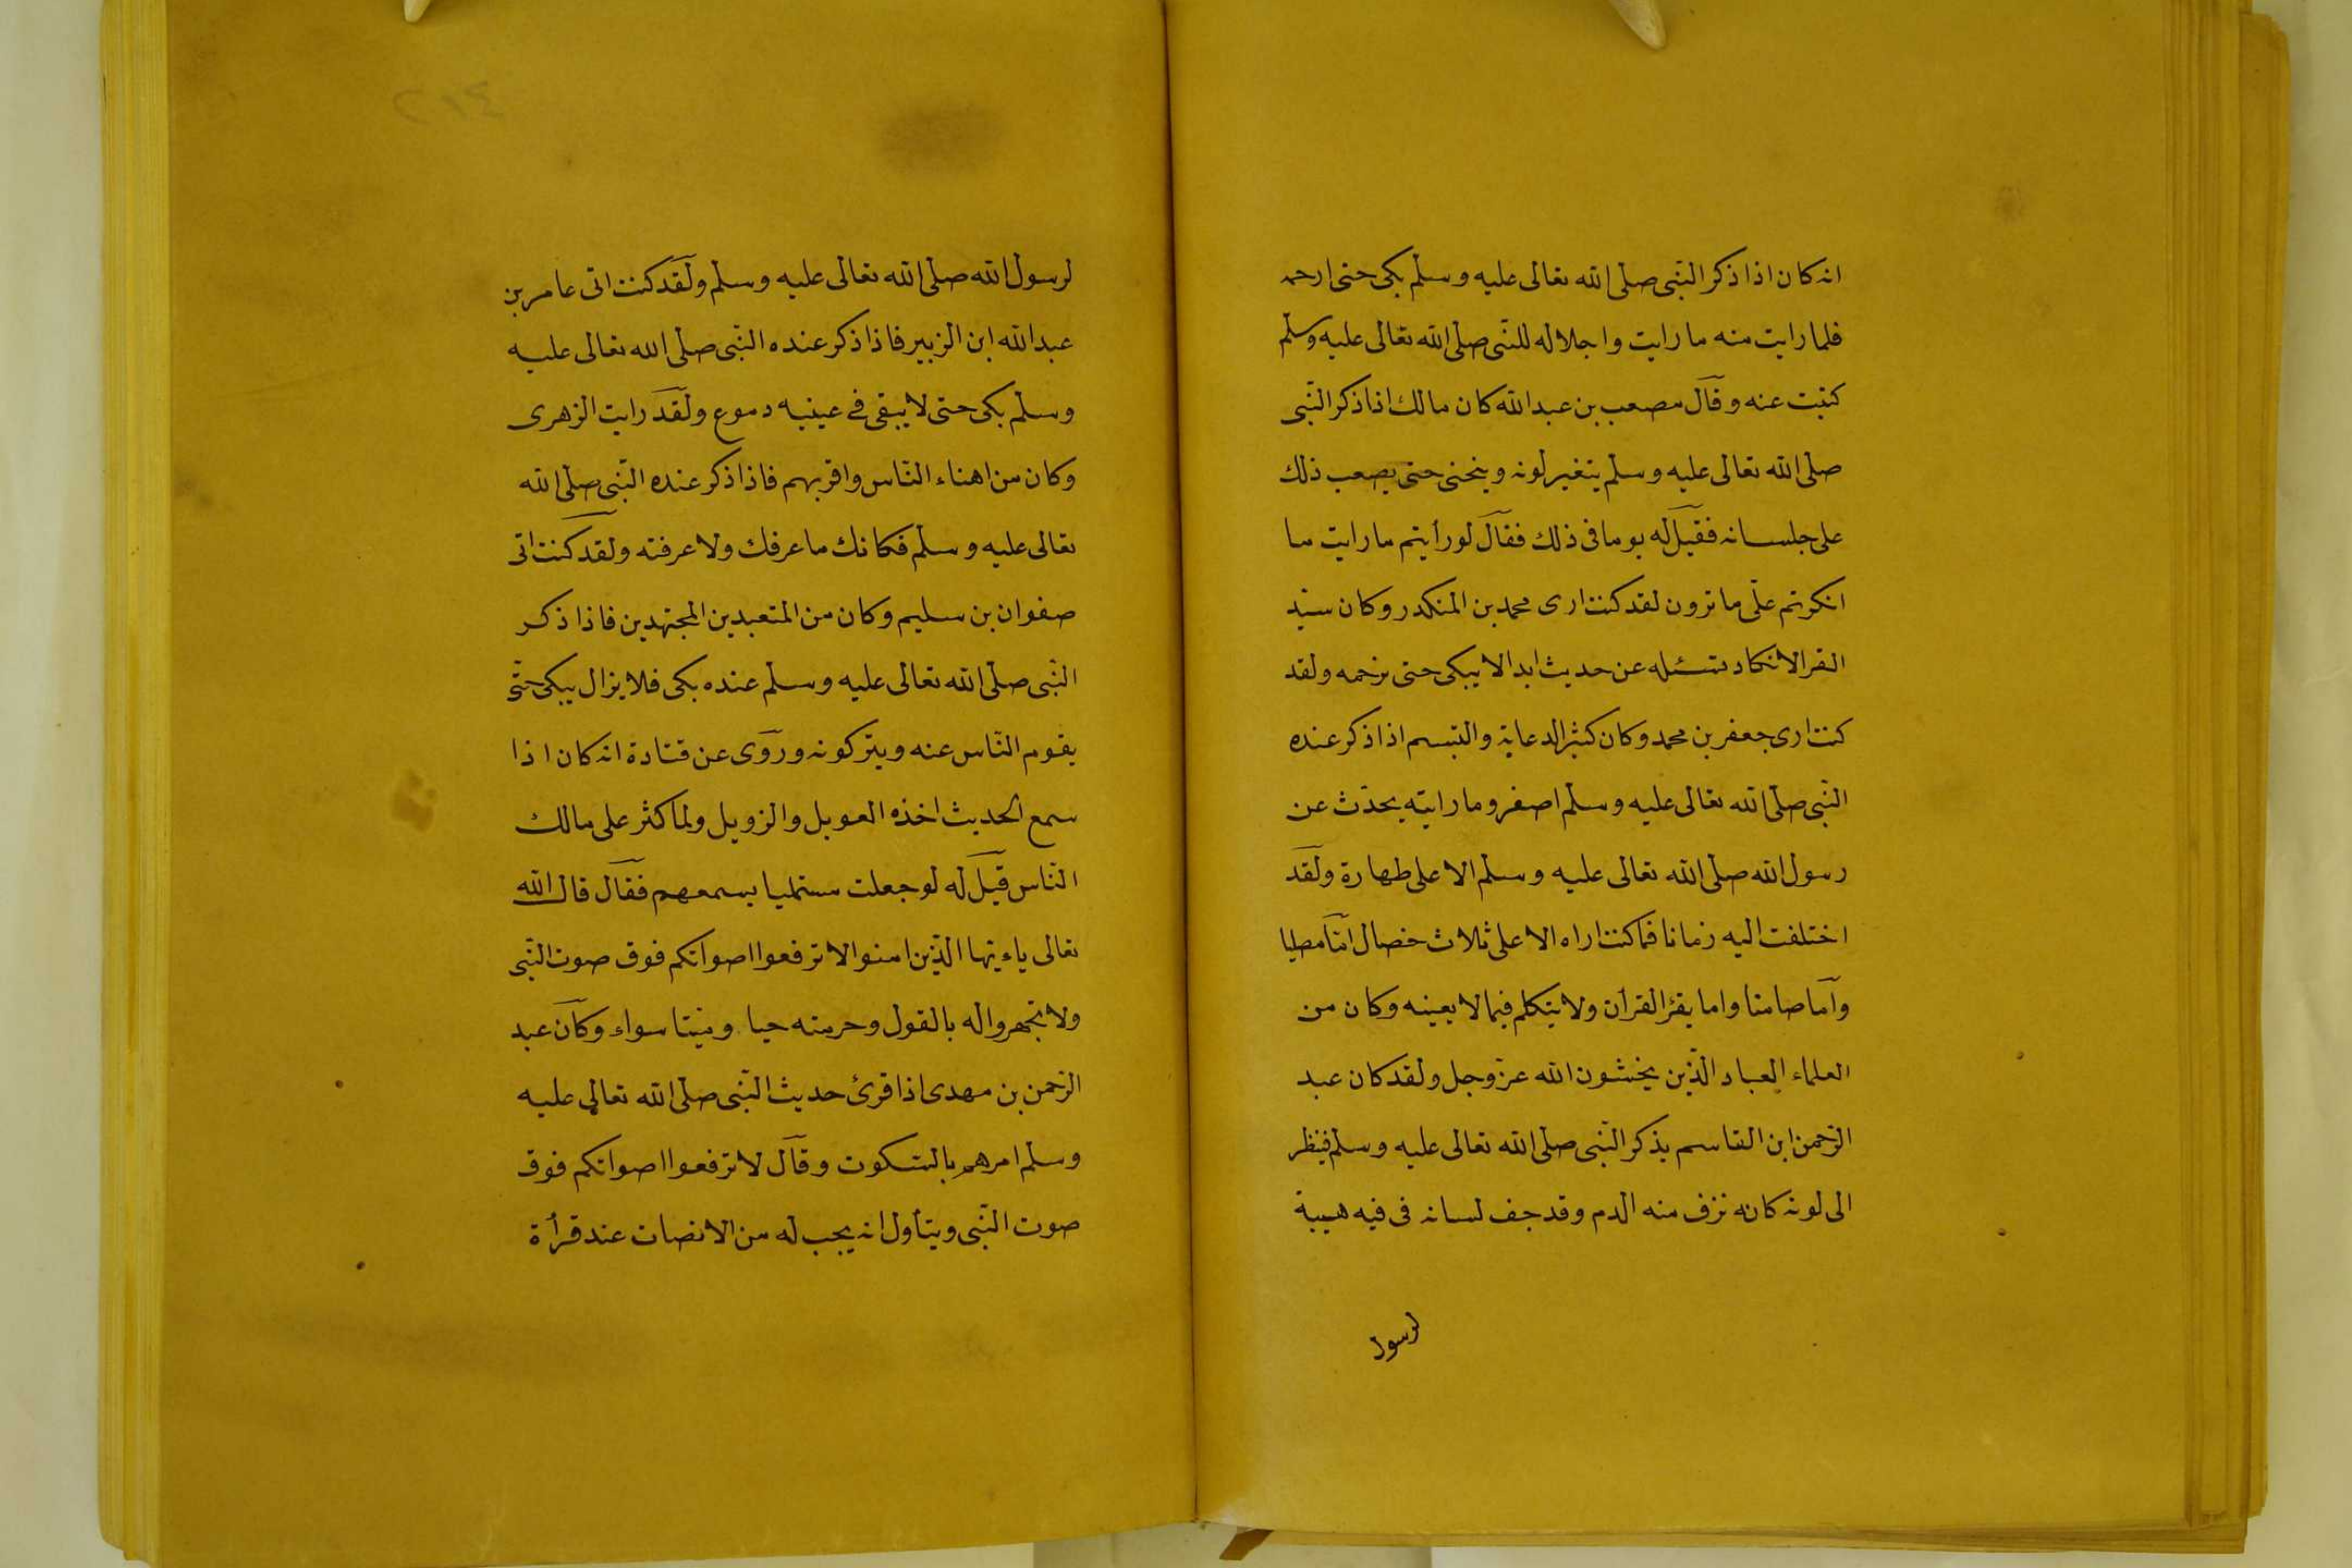 انه كان اذا ذكر النّبى صلّى الله تعالى عليه وسلّم بكى حتى ارحمه
فلما رايت منه ما رايت واجلاله للنّبى صلّى الله تعالى عليه وسلّم
كتبت عنه وقال مصعب بن عبدالله كان مالك اذا ذكر النّبى
صلّى الله تعالى عليه وسلّم يتغير لونه وينحنى حتى يصعب ذلك
على جلسانه فقيل له يوما فى ذلك فقال لو رأيتم ما رايت ما
انكرتم علىّ ما ترون لقد كنت ارى محمد بن المنكدر وكان سيّد
القرا لا نكاد نسئله عن حديث ابدا الا يبكى حتى نرحمه ولقد
كنت ارى جعفر بن محمد وكان كثير الدعابة والتبسم اذا ذكر عنده
النّبى صلّى الله تعالى عليه وسلّم اصفر وما رايته يحدّث عن
رسول الله صلّى الله تعالى عليه وسلّم الا على طهارة ولقد
اختلفت اليه زمانا فما كنت اراه الا على ثلاث خصال امّا مصليا
وامّا صامتا واما يقرٔ القرأن ولا يتكلم فيما لا يعينه وكان من
العلماء العباد الّذين يخشون الله عزّ وجل ولقد كان عبد
الرّحمن ابن القاسم يذكر النّبى صلّى الله تعالى عليه وسلّم فينظر
الى لونه كانه نزف منه الدم وقد جف لسانه فى فيه هيبة
لرسول
لرسول الله صلّى الله تعالى عليه وسلّم ولقد كنت اتى عامر بن
عبدالله ابن الزبير فاذا ذكر عنده النّبى صلّى الله تعالى عليه
وسلّم بكى حتى لا يبقى فى عينيه دموع ولقد رايت الزهرى
وكان من اهناء النّاس واقربهم فاذا ذكر عنده النّبى صلّى الله
تعالى عليه وسلّم فكانك ما عرفك ولا عرفته ولقد كنت اتى
صفوان بن سليم وكان من المتعبدين المجتهدين فاذا ذكر
النّبى صلّى الله تعالى عليه وسلّم عنده بكى فلا يزال يبكى حتّى
يقوم النّاس عنه ويتركونه وروى عن قتادة انه كان اذا
سمع الحديث اخذه العويل والزويل ولما كثر على مالك
النّاس قيل له لو جعلت مستمليا يسمعهم فقال قال الله
تعالى ياءيّها الّذين امنوا لا ترفعوا اصواتكم فوق صوت النّبى
ولا تجهروا له بالقول وحرمته حيا وميتا سواء وكان عبد
الرّحمن بن مهدى اذا قرئ حديث النّبى صلّى الله تعالى عليه
وسلم امرهم بالسّكوت وقال لا ترفعوا اصواتكم فوق
صوت النّبى ويتأول انه يجب له من الانصات عند قرأة